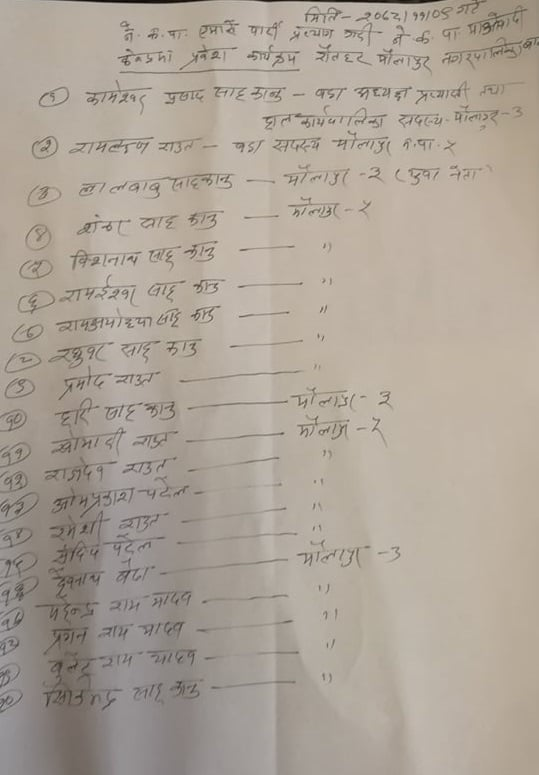 मिति- २०७८/११/०९ गते
ने. क. पा. एमाले पार्टी परित्याग गरी ने. क. पा. माओवादी
केन्द्रमा प्रवेश कार्यक्रम रौतहट मौलापुर नगरपालिका
(१) कामेश्वर प्रसाद साह कानु - वडा अध्यक्ष प्रत्याशी तथा
हाल कार्यपालिका सदस्य- मौलापुर - ३
(२) रामलखन राउत - वडा सदस्य मौलापुर न.पा. २
(३) लालबाबु साह कानु — मौलापुर - २ (युवा नेता)
(४) शंकर साह कानु — मौलापुर - २
(५) विशनाथ साह कानु — "
(६) रामईश्वर साह कानु — "
(७) रामअयोध्या साह कानु — "
(८) रघुवर साह कानु — "
(९) प्रमोद राउत — "
१० हरि साह कानु — मौलापुर - ३
११ राउत — मौलापुर - २
१२ राजदेव राउत — "
१३ ओमप्रकाश पटेल — "
१४ राउत — "
१५ संदिप पटेल — "
१६ बैठा — मौलापुर - ३
१७ महेन्द्र राय यादव — "
१८ राय यादव — "
१९ राय यादव — "
२० साह कानु — "